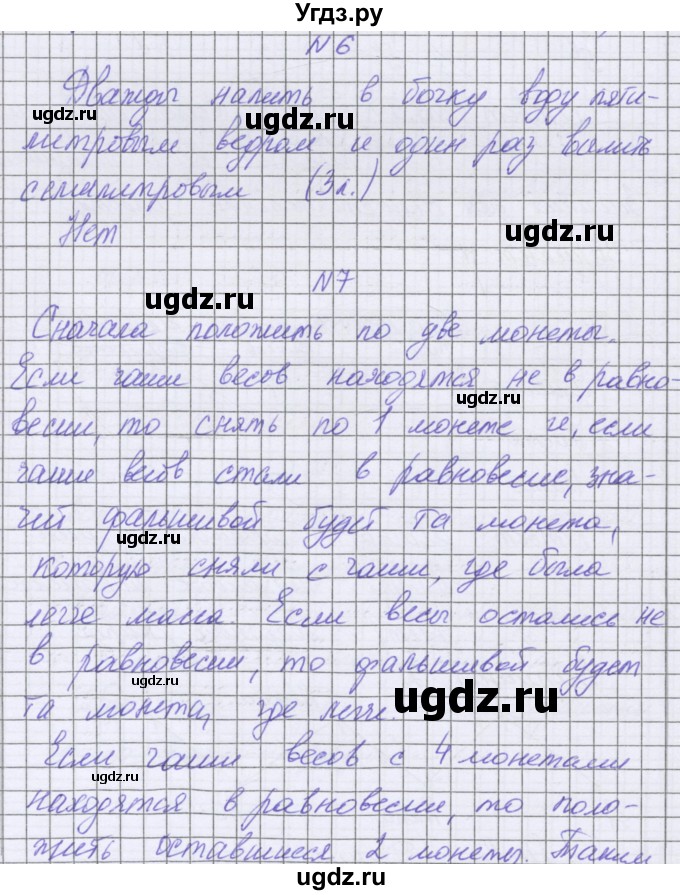 Угдз.ру
N 6
Дважды налить в бочку воду пяти-
литровым ведром и один раз вылить
семилитровым (3л.)
Нет
N7
Сначала положить по две монеты.
Если чаши весов находятся не в равно-
весии, то снять по 1 монете и, если
чаши весов стали в равновесие, зна-
чит фальшивой будет та монета,
которую сняли с чаши, где была
легче масса. Если весы остались не
в равновесии, то фальшивой будет
та монета, где легче.
Если чаши весов с 4 монетами
находятся в равновесии, то поло-
жить оставшиеся 2 монеты. Таким
ugdz.ru
ugdz.ru
ugdz.ru
ugdz.ru
ugdz.ru
ugdz.ru
ugdz.ru
ugdz.ru
ugdz.ru
ugdz.ru
ugdz.ru
ugdz.ru